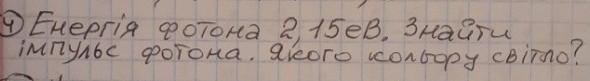 ④ Енергія фотона 2,15еВ. Знайти
імпульс фотона. Якого кольору світло?